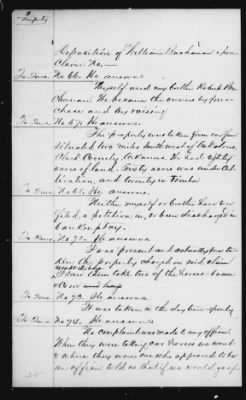 Property
Deposition of William Buchanan
Claim No.
To Ques. No. 66. He answers
Myself and my brother Robert Bu
chanan. We became the owners by pur
chase and by raising
To Ques. No. 67. He answers
The property was taken from our farm
situated two miles southwest of Oakalona,
Clark County, Arkansas. We had eighty
acres of land. Forty acres was under cul
tivation, and twenty in timber
To Ques. No. 68. He answers
Neither myself or brother have ever
filed a petition in or been discharged in
bankruptcy.
To Ques. No. 72. He answers
I was present and actually saw ta
ken the property charged on said claim
take two of the horses
To Ques. No. 73. He answers
It was taken in the day time openly
To Ques. No. 74. He answers
No complaint was made to any officer.
When they were taking our horses we went
to where they were one who appeared to be
an officer told us that if we would go up